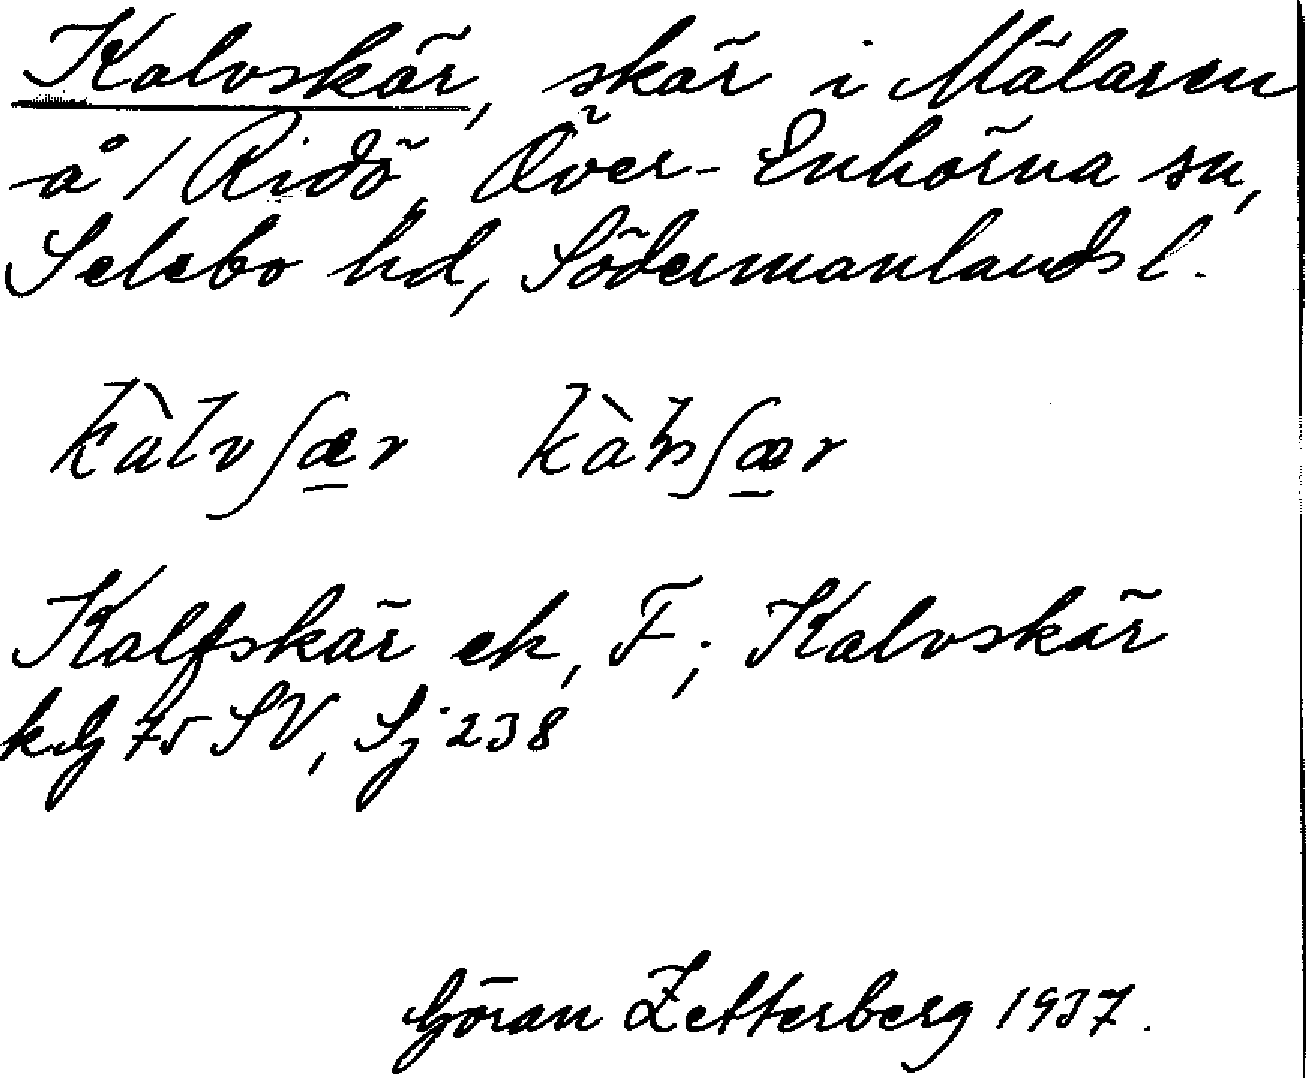 Kalvskär, skär i Mälaren
å 1 Ridö, Över-Enhörna sn,
Selebo hd, Södermanlands l.
kàlvʃær kàlvʃær
Kalfskär ek, F; Kalvskär
75 SV, Sj 238
Göran Zetterberg 1937.